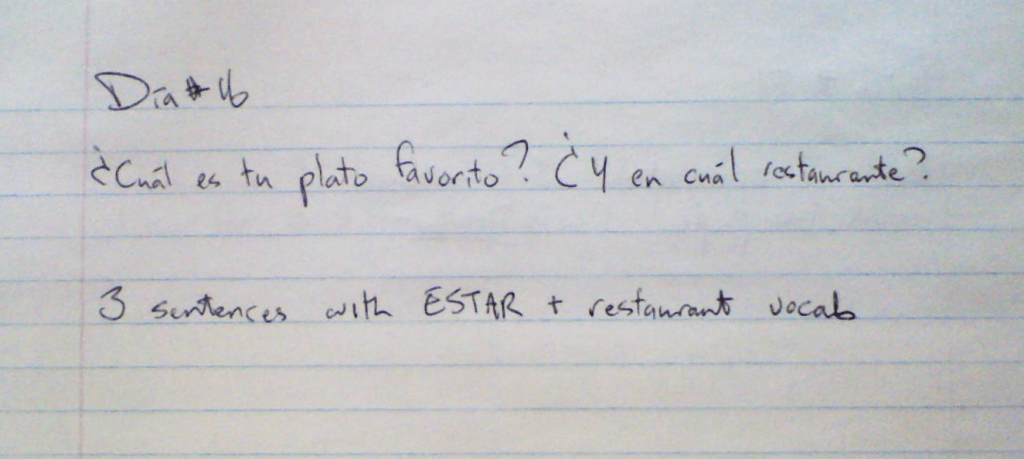 Día #16
¿Cuál es tu plato favorito? ¿Y en cuál restaurante?
3 sentences with ESTAR + restaurant vocab